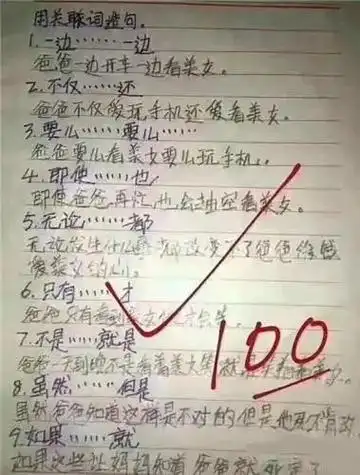 用关联词造句。
1.一边……一边
爸爸一边开车一边看美女。
2.不仅……还
爸爸不仅爱玩手机还爱看美女。
3.要么……要么……
爸爸要么看美女要么玩手机。
4.即使……也
即使爸爸再忙也会抽空看美女。
5.无论……都
无论发生什么 都改变不了爸爸
爱美女的心。
6.只有……才
爸爸只有看到美女 才会笑。
100
7.不是……就是
爸爸一天到晚不是看着美女笑就是
8.虽然……但是
虽然爸爸知道这样是不对的但是他死不肯改
9.如果……就
如果这些让妈妈知道爸爸就死定